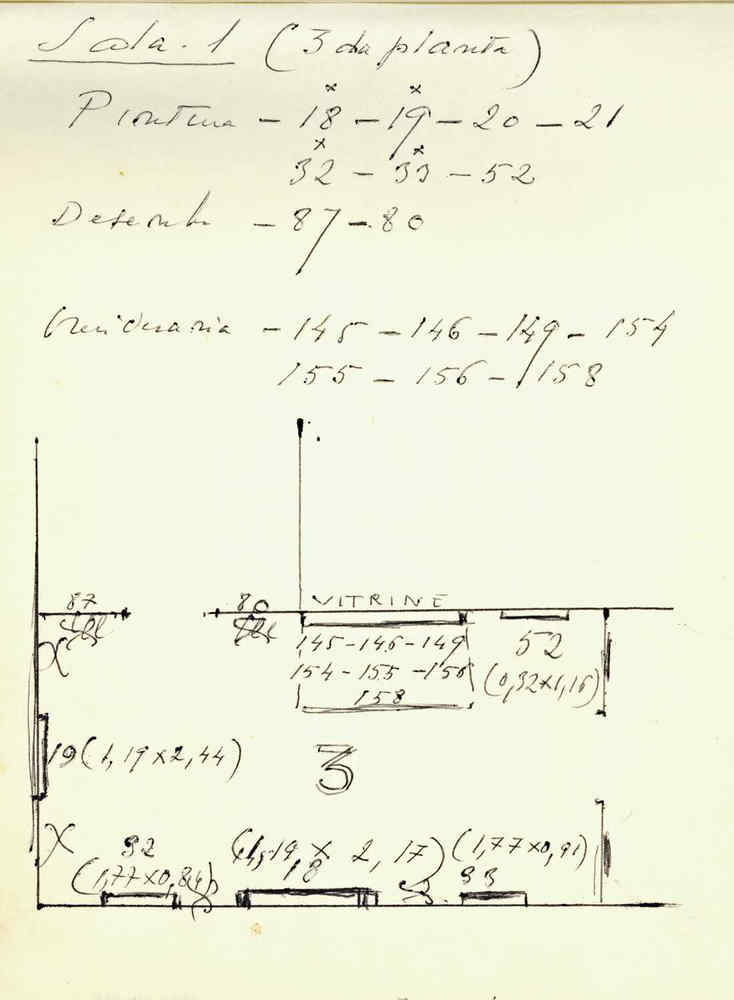 Sala. 1 (3 da planta)
x x
Pintura - 18 - 19 - 20 - 21
x x
32 - 33 - 52
Desenho - 87 - 80
- 145 - 146 - 149 - 154
155 - 156 - 158
87 80 VITRINE
145 - 146 - 149 52
154 - 155 - 156 (0,32x1,16)
158
X
19 (1,19x2,44) 3
X 32 (1,19 x 2,17) (1,77x0,91)
(1,77x0,84) 18 33